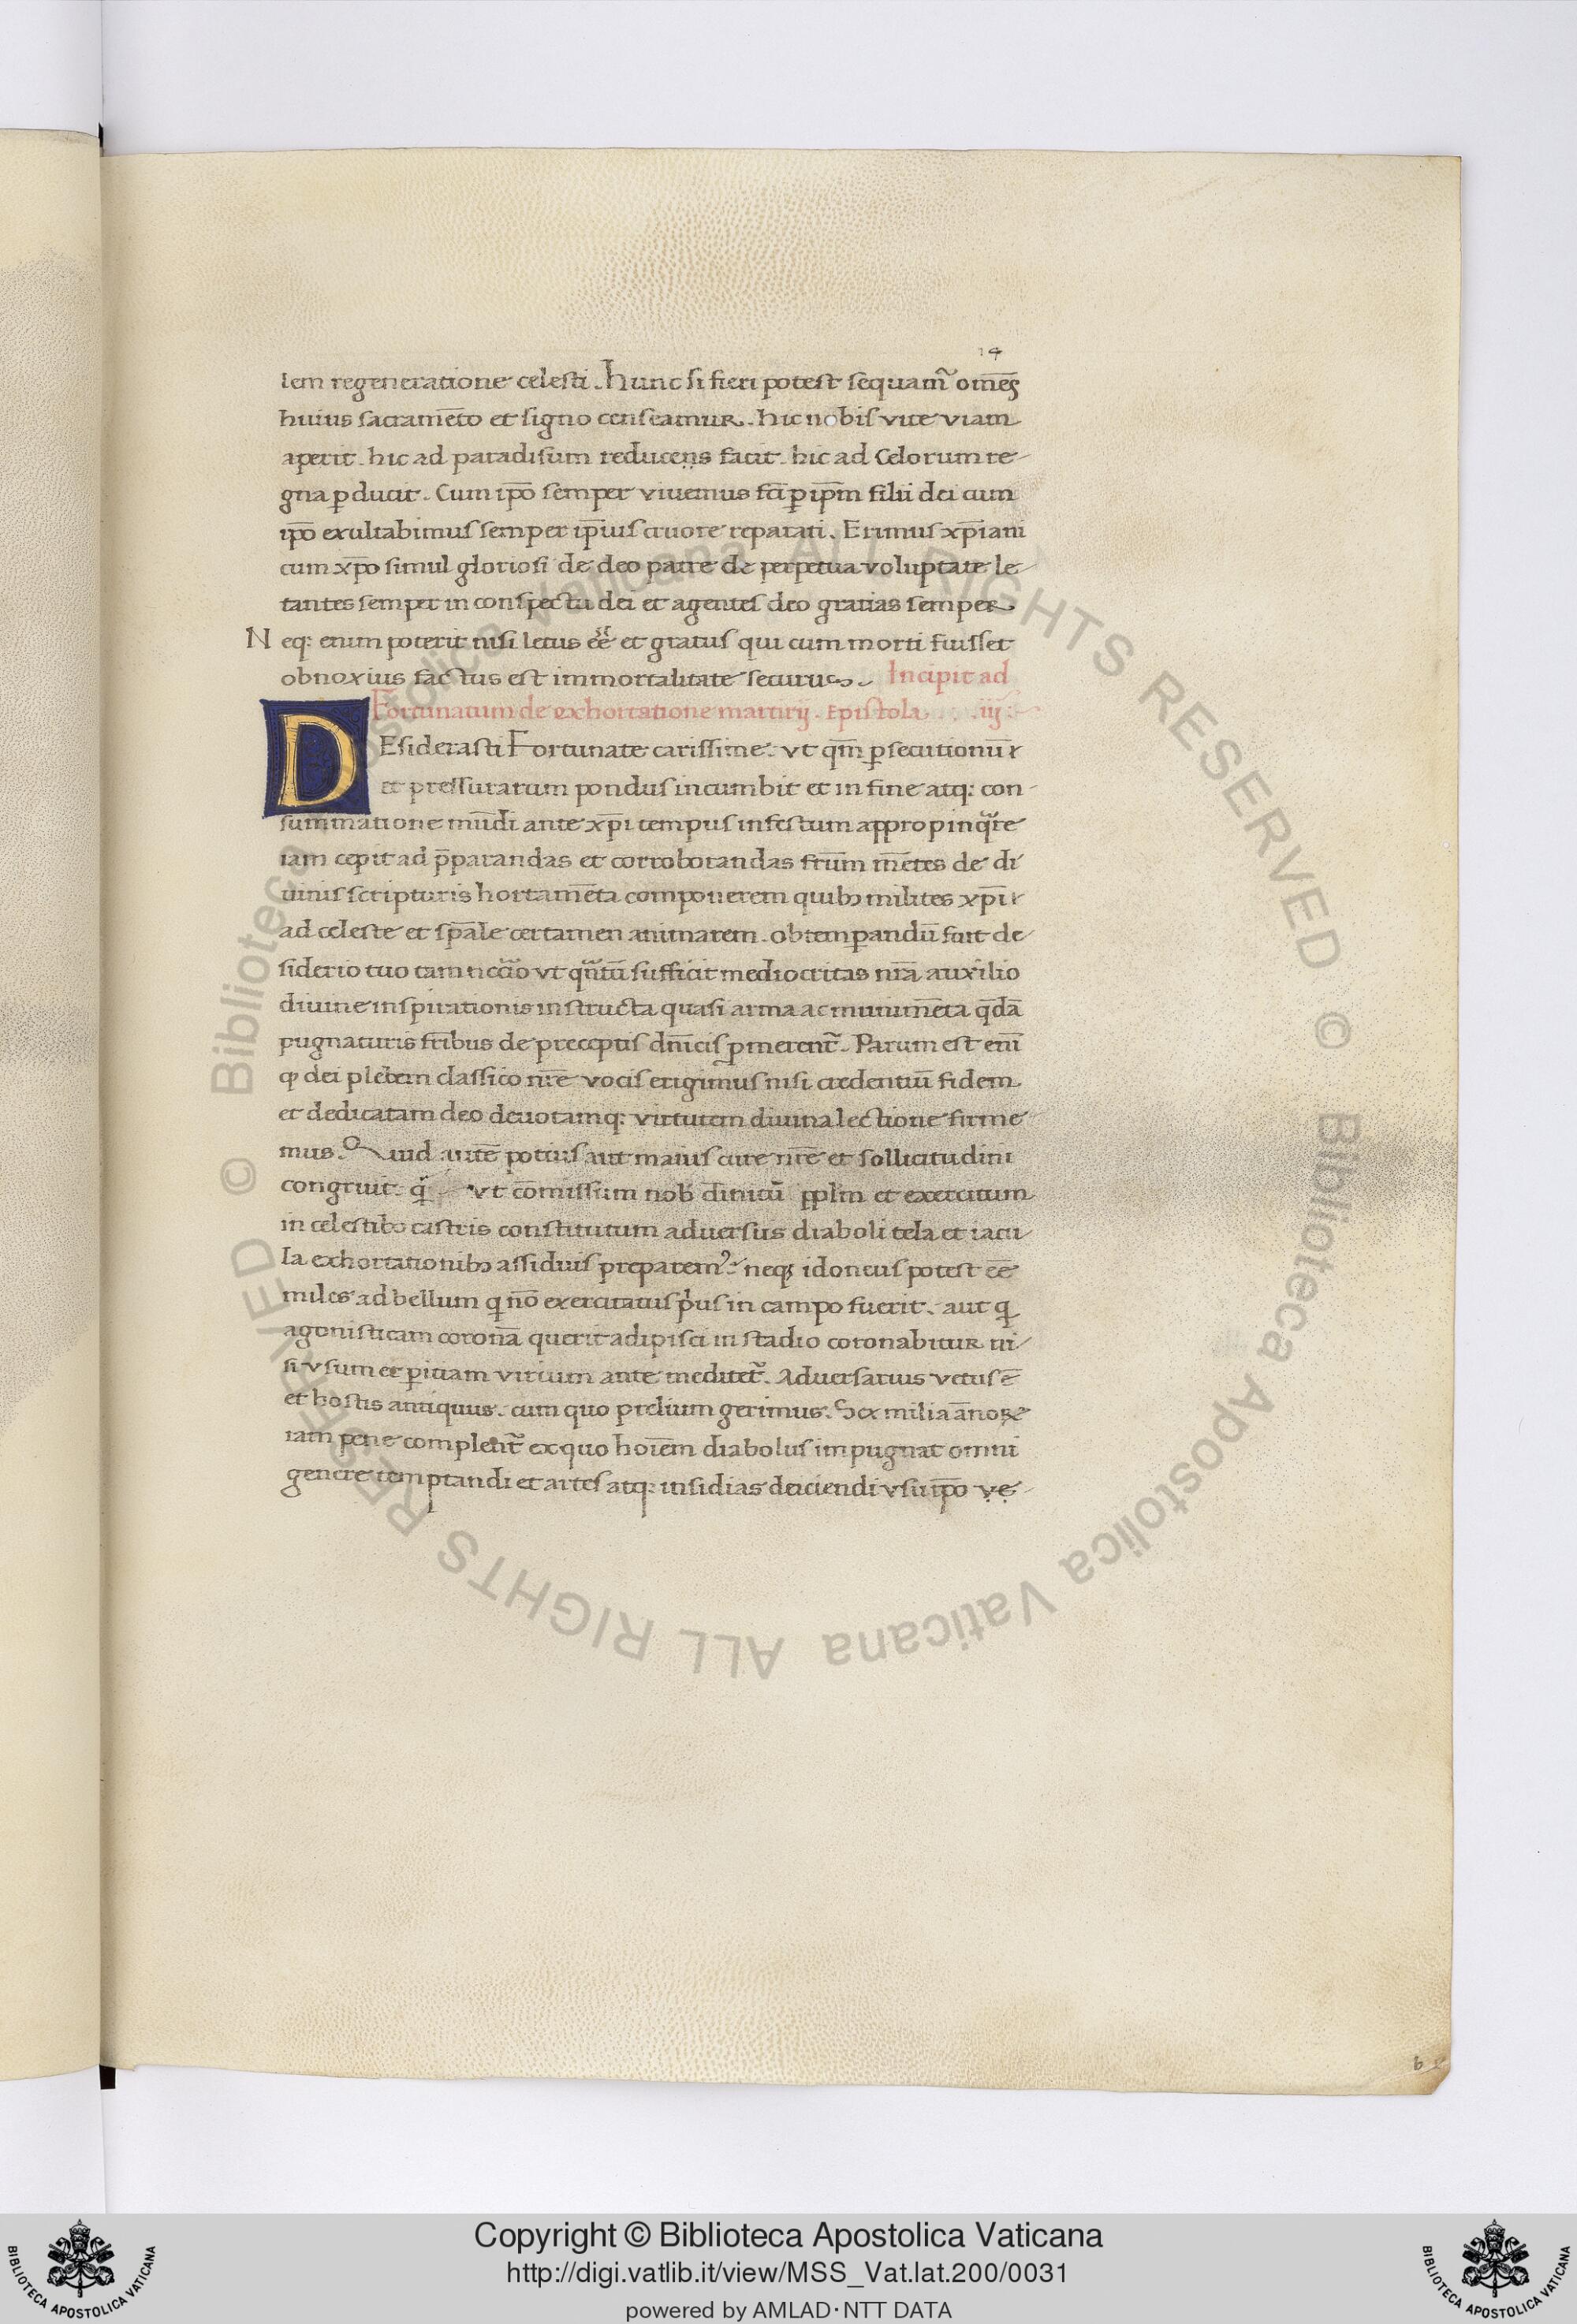 14
lem regeneratione celesti. hunc si fieri potest sequam̃ om̅es
huius sacram̅eto et signo censeamur. hic nobis vite viam
aperit. hic ad paradisum reducens facit. hic ad Celorum re
gna ꝑducit. Cum ip̅o semper viuemus fc̅i ꝑ ip̅m filii dei cum
ip̅o exultabimus semper ip̅ius cruore reparati. Erimus xp̅iani
cum xp̅o simul gloriosi de deo patre de perpetua voluptate le
tantes semper in conspectu dei et agentes deo gratias semper
Neq: enim poterit nisi letus ee̅ et gratus qui cum morti fuisset
obnoxius factus est immortalitate securus. Incipit ad
Fortunatum de exhortatione martirij. Epistola. iij.
DEsiderasti Fortunate carissime. vt qm̅ ꝑsecutionu̅
et pressurarum pondus incumbit et in fine atq: con
summatione mu̅di ante xp̅i tempus infestum appropinq̃re
iam cepit ad p̅parandas et corroborandas fr̅um me̅tes de di
uinis scripturis hortame̅ta componerem quibꝫ milites xp̅i
ad celeste et sp̅ale certamen animarem. obtemꝑandu̅ fuit de
siderio tuo tam n̅cc̅io vt qñtu̅ sufficit mediocritas nr̅a auxilio
diuine inspirationis instructa quasi arma ac munime̅ta q̅da̅
pugnaturis fr̅ibus de preceptis dn̅icis ꝑmerent̃. Parum est eni̅
ꝙ dei plebem classico nr̅e vocis erigimus nisi credentiu̅ fidem
et dedicatam deo deuotamq: virtutem diuina lectione firme
mus. Quid aute̅ potius aut maius cure nr̅e et sollicitudini
congruit. q̃ vt co̅missum nob̅ diuinitu̅ pp̅lm et exercitum
in celestibꝫ castris constitutum aduersus diaboli tela et iacu
la exhortationibꝫ assiduis preparemꝰ. neqꝫ idoneus potest ee̅
miles ad bellum q̇ no̅ exercitatus pͥus in campo fuerit. aut q̇
agonisticam corona̅ querit adipisci in stadio coronabitur ni
si vsum et ꝑitiam virium ante meditet̃. Aduersarius vetus e̅
et hostis antiquus. cum quo prelium gerimus. Sex milia a̅noꝝ
iam pene complent̃ ex quo hoi̅em diabolus impugnat omni
genere temptandi et artes atq: insidias deiciendi vsu ip̅o ve
b
© Biblioteca Apostolica Vaticana ALL RIGHTS RESERVED © Biblioteca Apostolica Vaticana ALL RIGHTS RESERVED
Copyright © Biblioteca Apostolica Vaticana
http://digi.vatlib.it/view/MSS_Vat.lat.200/0031
powered by AMLAD·NTT DATA
BIBLIOTECA APOSTOLICA VATICANA
BIBLIOTECA APOSTOLICA VATICANA